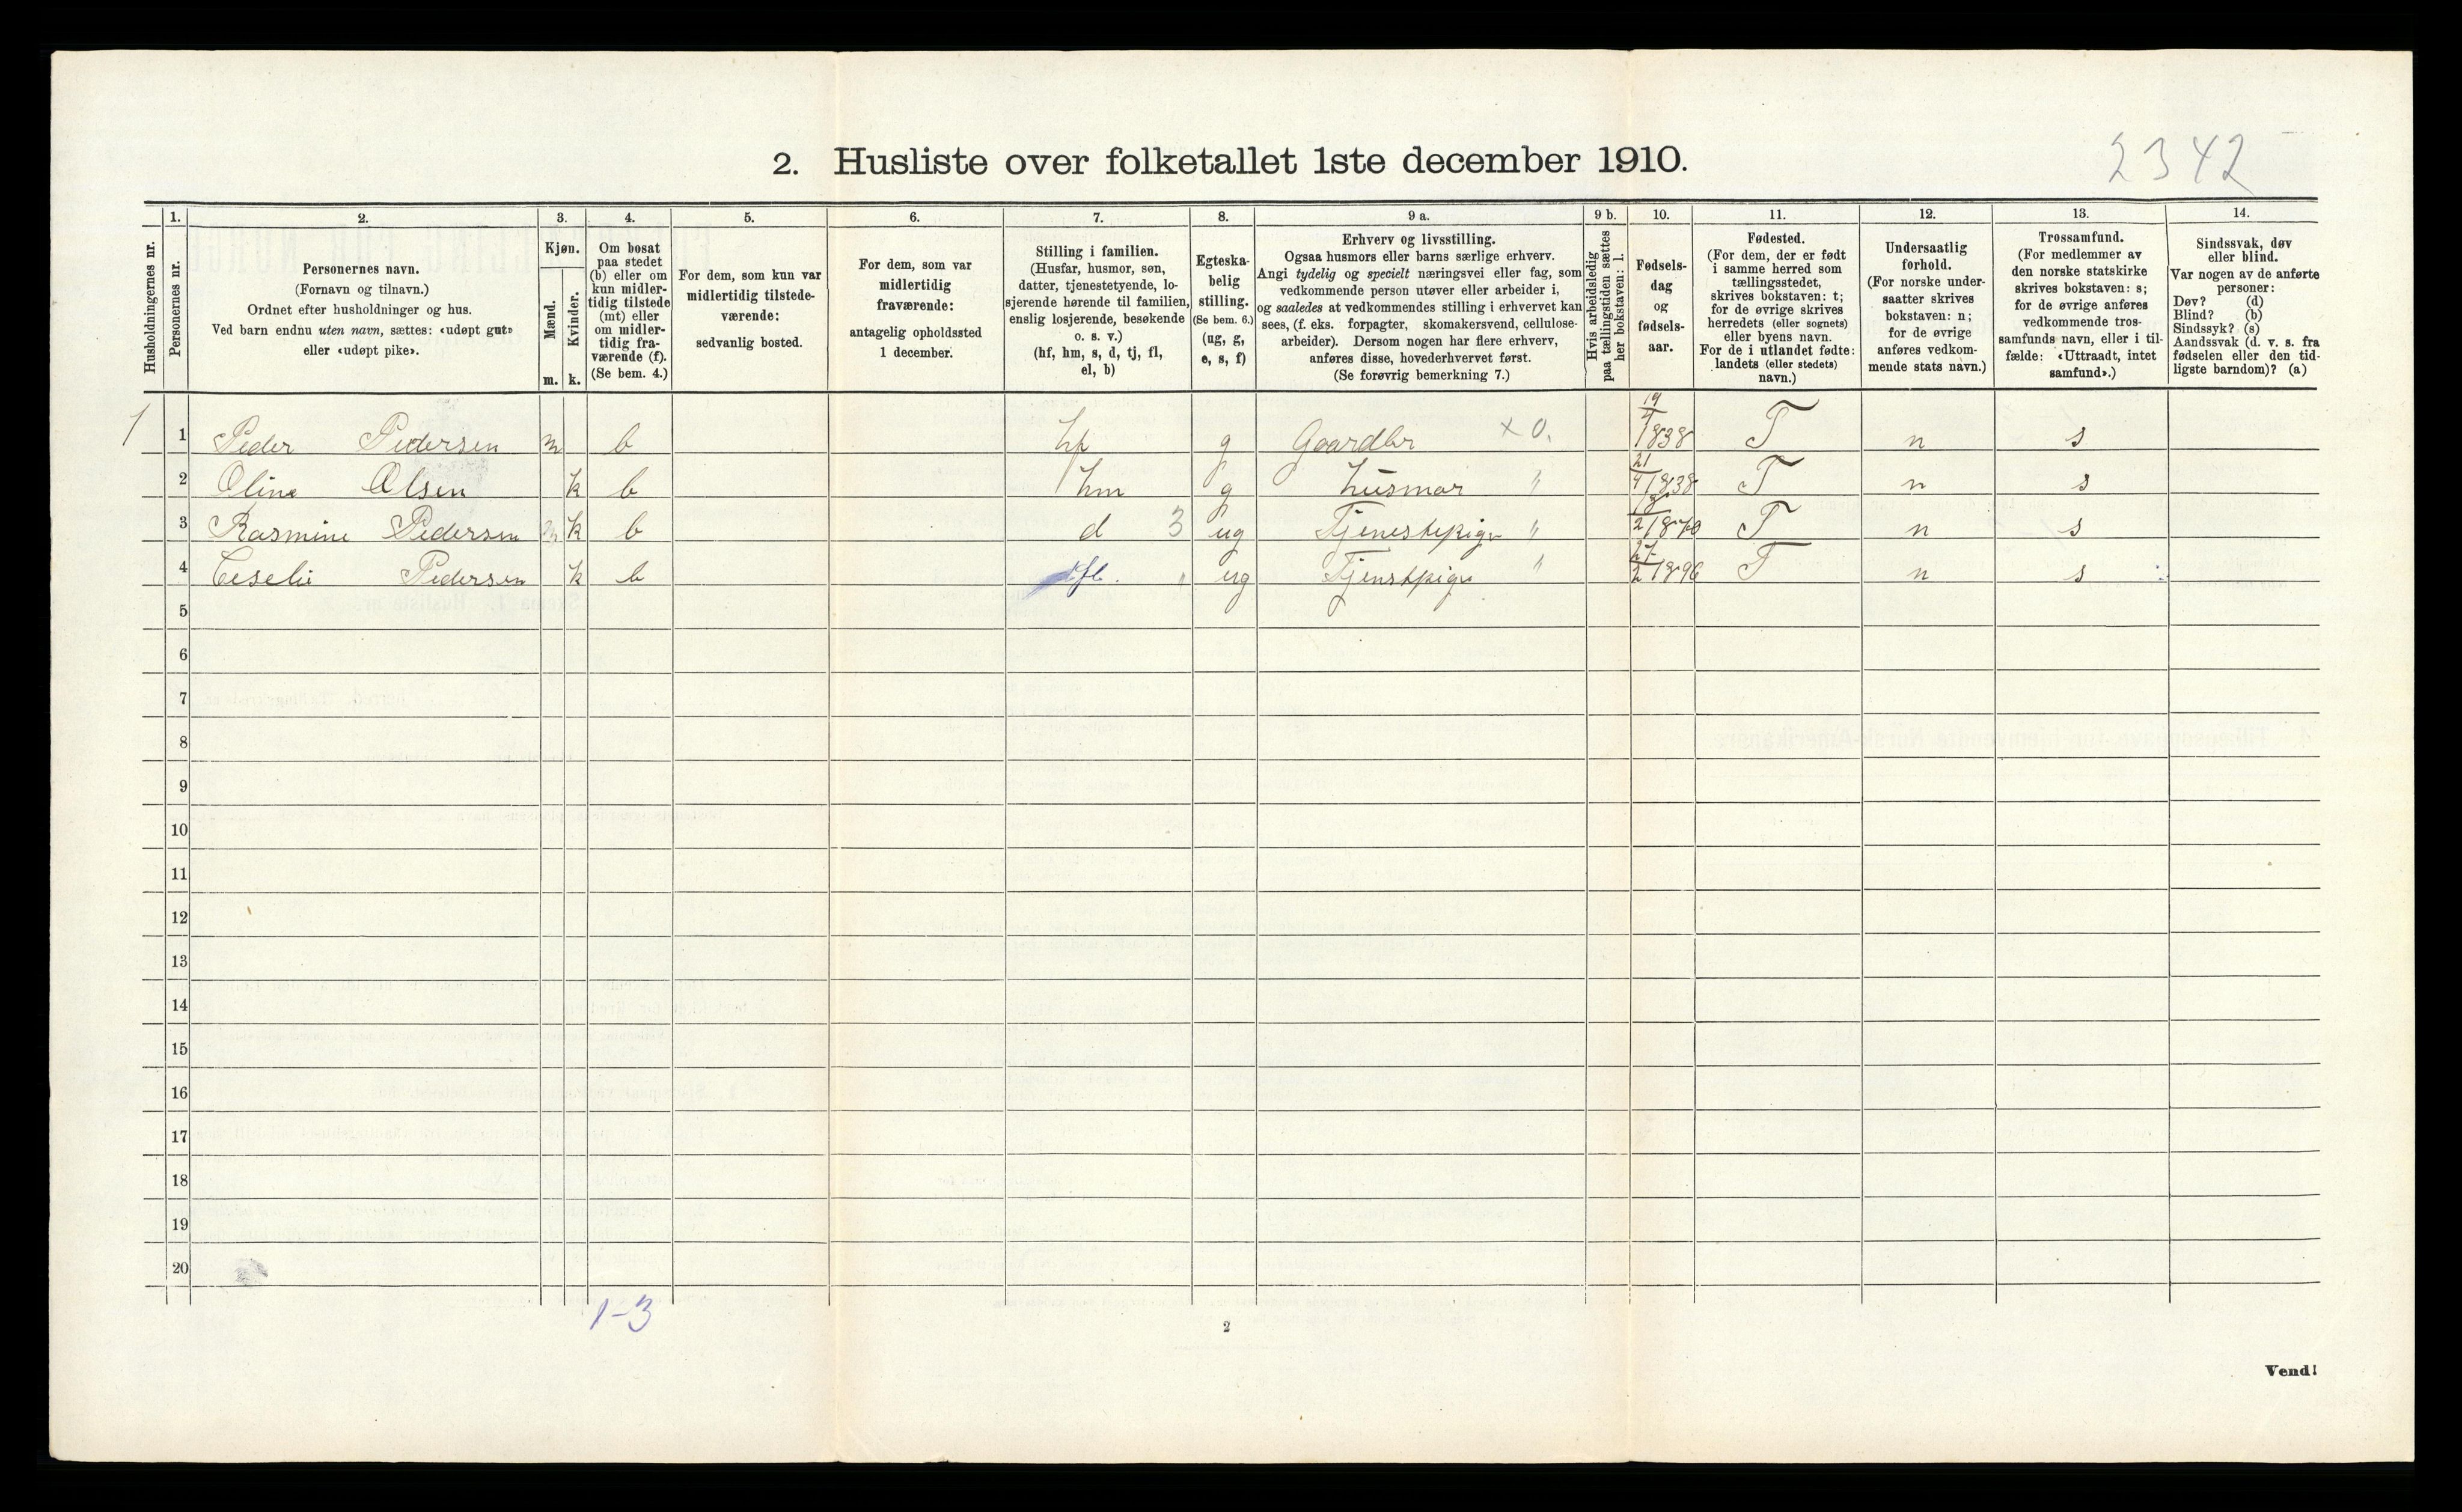 2342
2. Husliste over folketallet 1ste december 1910.
1. 2. 3. 4. 5. 6. 7. 8. 9 a. 9 b. 10. 11. 12. 13. 14.
Husholdningernes nr.
Personernes nr.
Personernes navn.
(Fornavn og tilnavn.)
Ordnet efter husholdninger og hus.
Ved barn endnu uten navn, sættes: «udøpt gut»
eller «udøpt pike».
Kjøn.
Mænd.
m.
Kvinder.
k.
Om bosat
paa stedet
(b) eller om
kun midler-
tidig tilstede
(mt) eller
om midler-
tidig fra-
værende (f).
(Se bem. 4.)
For dem, som kun var
midlertidig tilstede-
værende:
sedvanlig bosted.
For dem, som var
midlertidig
fraværende:
antagelig opholdssted
1 december.
Stilling i familien.
(Husfar, husmor, søn,
datter, tjenestetyende, lo-
sjerende hørende til familien,
enslig losjerende, besøkende
o. s. v.)
(hf, hm, s, d, tj, fl,
el, b)
Egteska-
belig
stilling.
(Se bem. 6.)
(ug, g,
e, s, f)
Erhverv og livsstilling.
Ogsaa husmors eller barns særlige erhverv.
Angi tydelig og specielt næringsvei eller fag, som
vedkommende person utøver eller arbeider i,
og saaledes at vedkommendes stilling i erhvervet kan
sees, (f. eks. forpagter, skomakersvend, cellulose-
arbeider). Dersom nogen har flere erhverv,
anføres disse, hovederhvervet først.
(Se forøvrig bemerkning 7.)
Hvis arbeidsledig
paa tællingstiden sættes
her bokstaven: l.
Fødsels-
dag
og
fødsels-
aar.
Fødested.
(For dem, der er født
i samme herred som
tællingsstedet,
skrives bokstaven: t;
for de øvrige skrives
herredets (eller sognets)
eller byens navn.
For de i utlandet fødte:
landets (eller stedets)
navn.)
Undersaatlig
forhold.
(For norske under-
saatter skrives
bokstaven: n;
for de øvrige
anføres vedkom-
mende stats navn.)
Trossamfund.
(For medlemmer av
den norske statskirke
skrives bokstaven: s;
for de øvrige anføres
vedkommende tros-
samfunds navn, eller i til-
fælde: «Uttraadt, intet
samfund».)
Sindssvak, døv
eller blind.
Var nogen av de anførte
personer:
Døv? (d)
Blind? (b)
Sindssyk? (s)
Aandssvak (d. v. s. fra
fødselen eller den tid-
ligste barndom)? (a)
1 1 Peder Pedersen m b hf g Gaardbr x 0. 1838 T n s
2 Oline Olsen k b hm g husmor " 21/4 1838 T n s
3 Rasmine Pedersen k b d 3 ug Tjenestepige " T n s
4 Pedersen k b fl. " ug Tjenstpige " 27/2 1896 T n s
5
6
7
8
9
10
11
12
13
14
15
16
17
18
19
20
1-3
2
Vend!